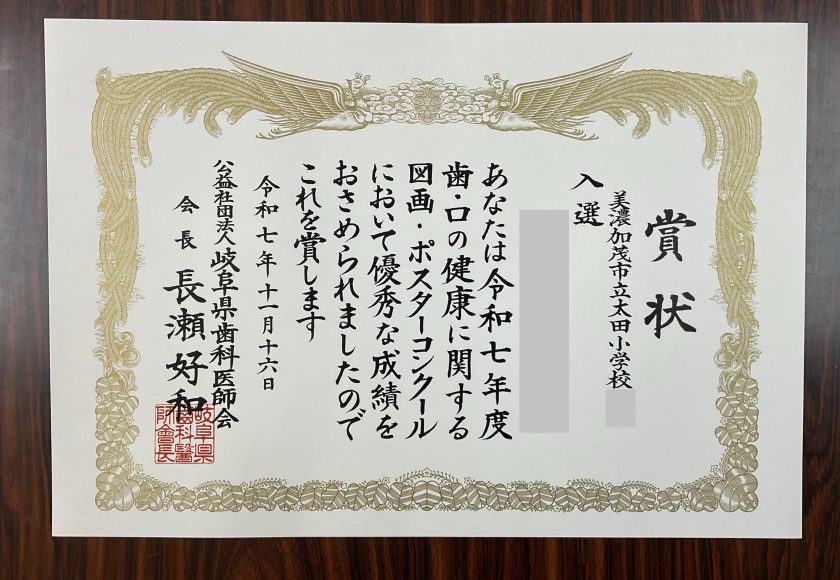 賞状
美濃加茂市立太田小学校
入選
あなたは令和七年度
歯・口の健康に関する
図画・ポスターコンクール
において優秀な成績を
おさめられましたので
これを賞します
令和七年十一月十六日
公益社団法人岐阜県歯科医師会
会長 長瀬好和
岐阜県
歯科醫
師會長